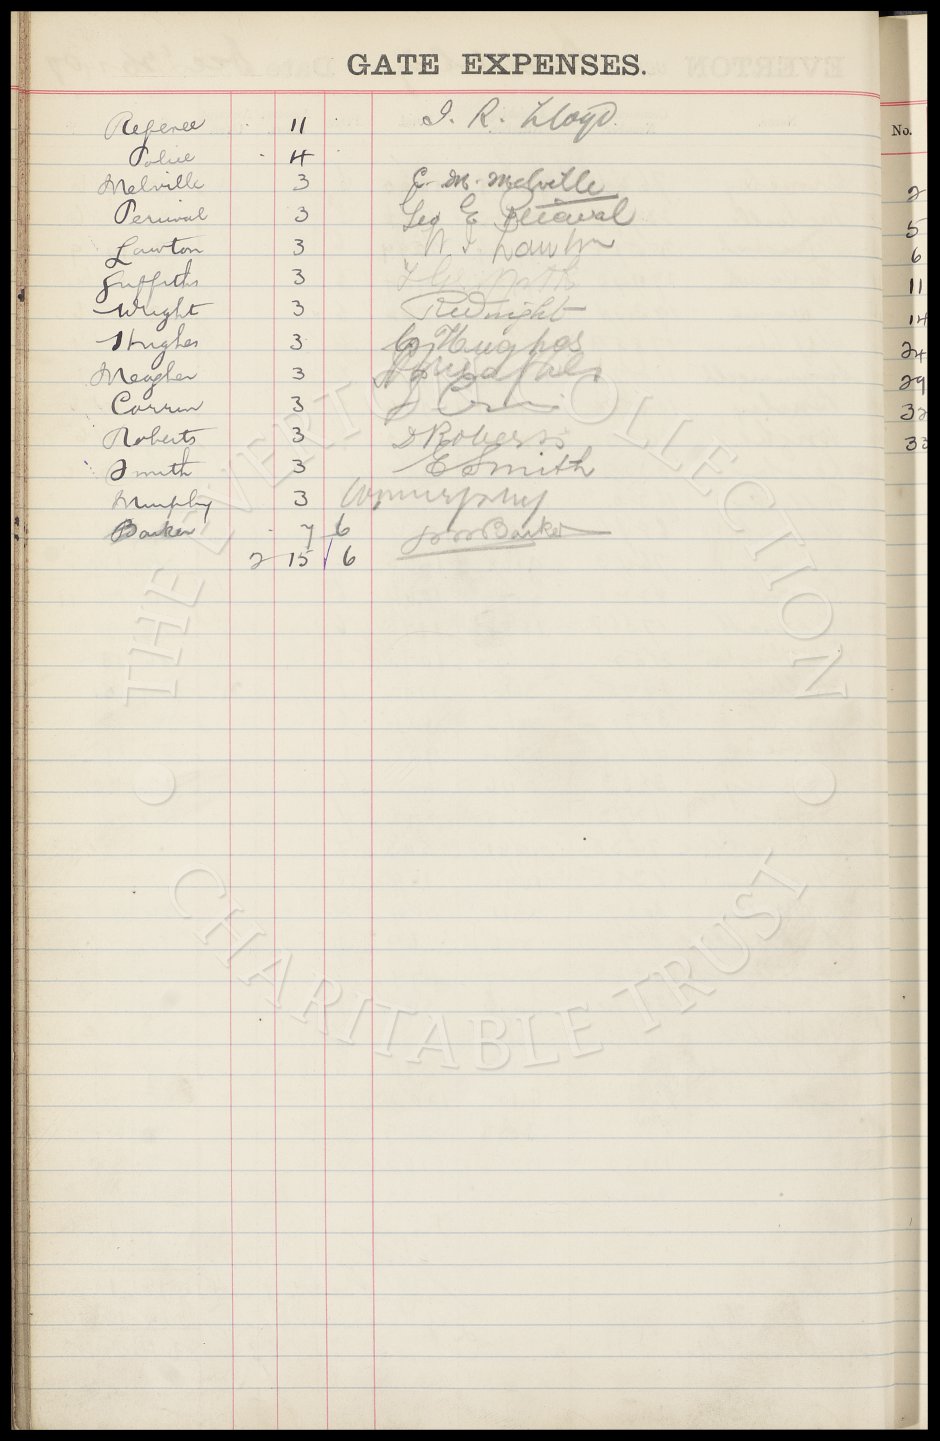 GATE EXPENSES.
Referee 11 J. R. Lloyd
Police 4
Melville 3 E. M. Melville
Percival 3 Geo E Percival
Lawton 3 Lawton
Griffiths 3
Wright 3 R Wright
Hughes 3 Hughes
Meagher 3
Corrin 3
Roberts 3 Roberts
Smith 3 E Smith
Murphy 3 Murphy
Barker 7 6 Barker
2 15 6
No.
2
5
6
11
14
24
29
32
33
THE EVERTON COLLECTION
CHARITABLE TRUST